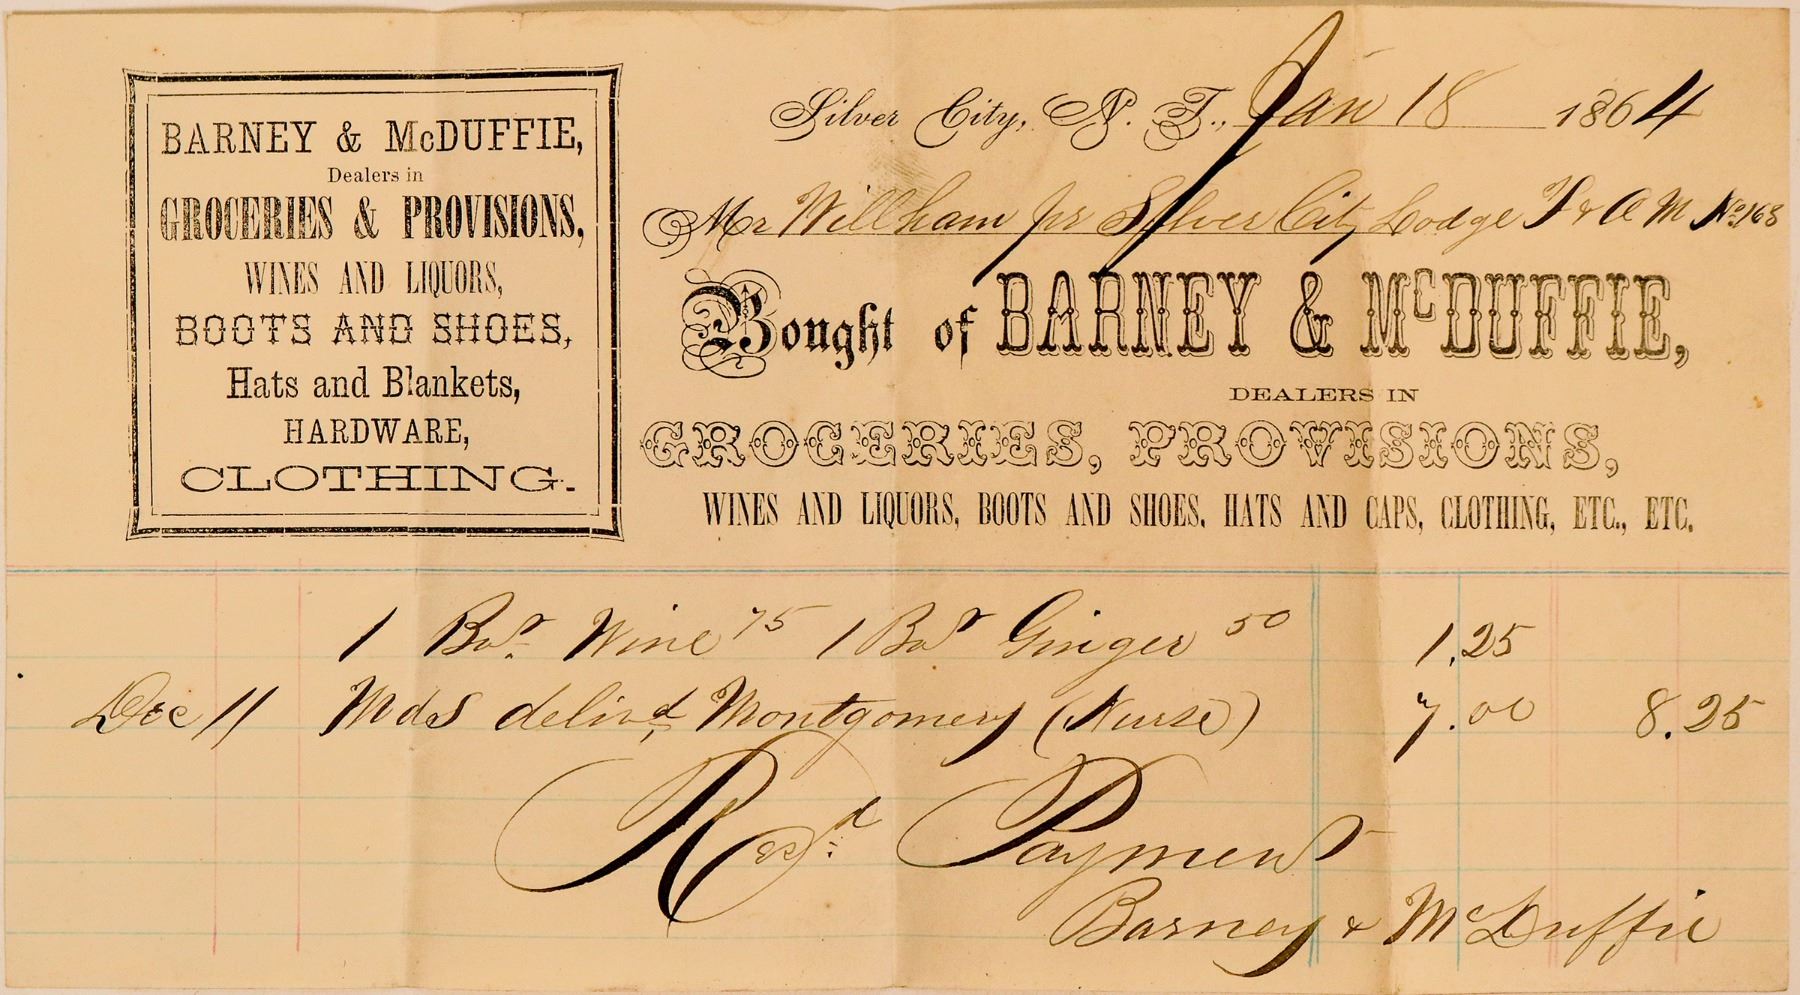 BARNEY & McDUFFIE,
Dealers in
GROCERIES & PROVISIONS,
WINES AND LIQUORS,
BOOTS AND SHOES,
Hats and Blankets,
HARDWARE,
CLOTHING.
Silver City, N. T., Jan 18 1864
Mr Willham pr Silver City Lodge F & A M No 168
Bought of BARNEY & McDUFFIE,
DEALERS IN
GROCERIES, PROVISIONS,
WINES AND LIQUORS, BOOTS AND SHOES, HATS AND CAPS, CLOTHING, ETC., ETC.
1 Bot Wine 75 1 Bot Ginger 50 1.25
Dec 11 Mds delivd Montgomery (Nurse) 7.00 8.25
Recd Payment
Barney & McDuffie